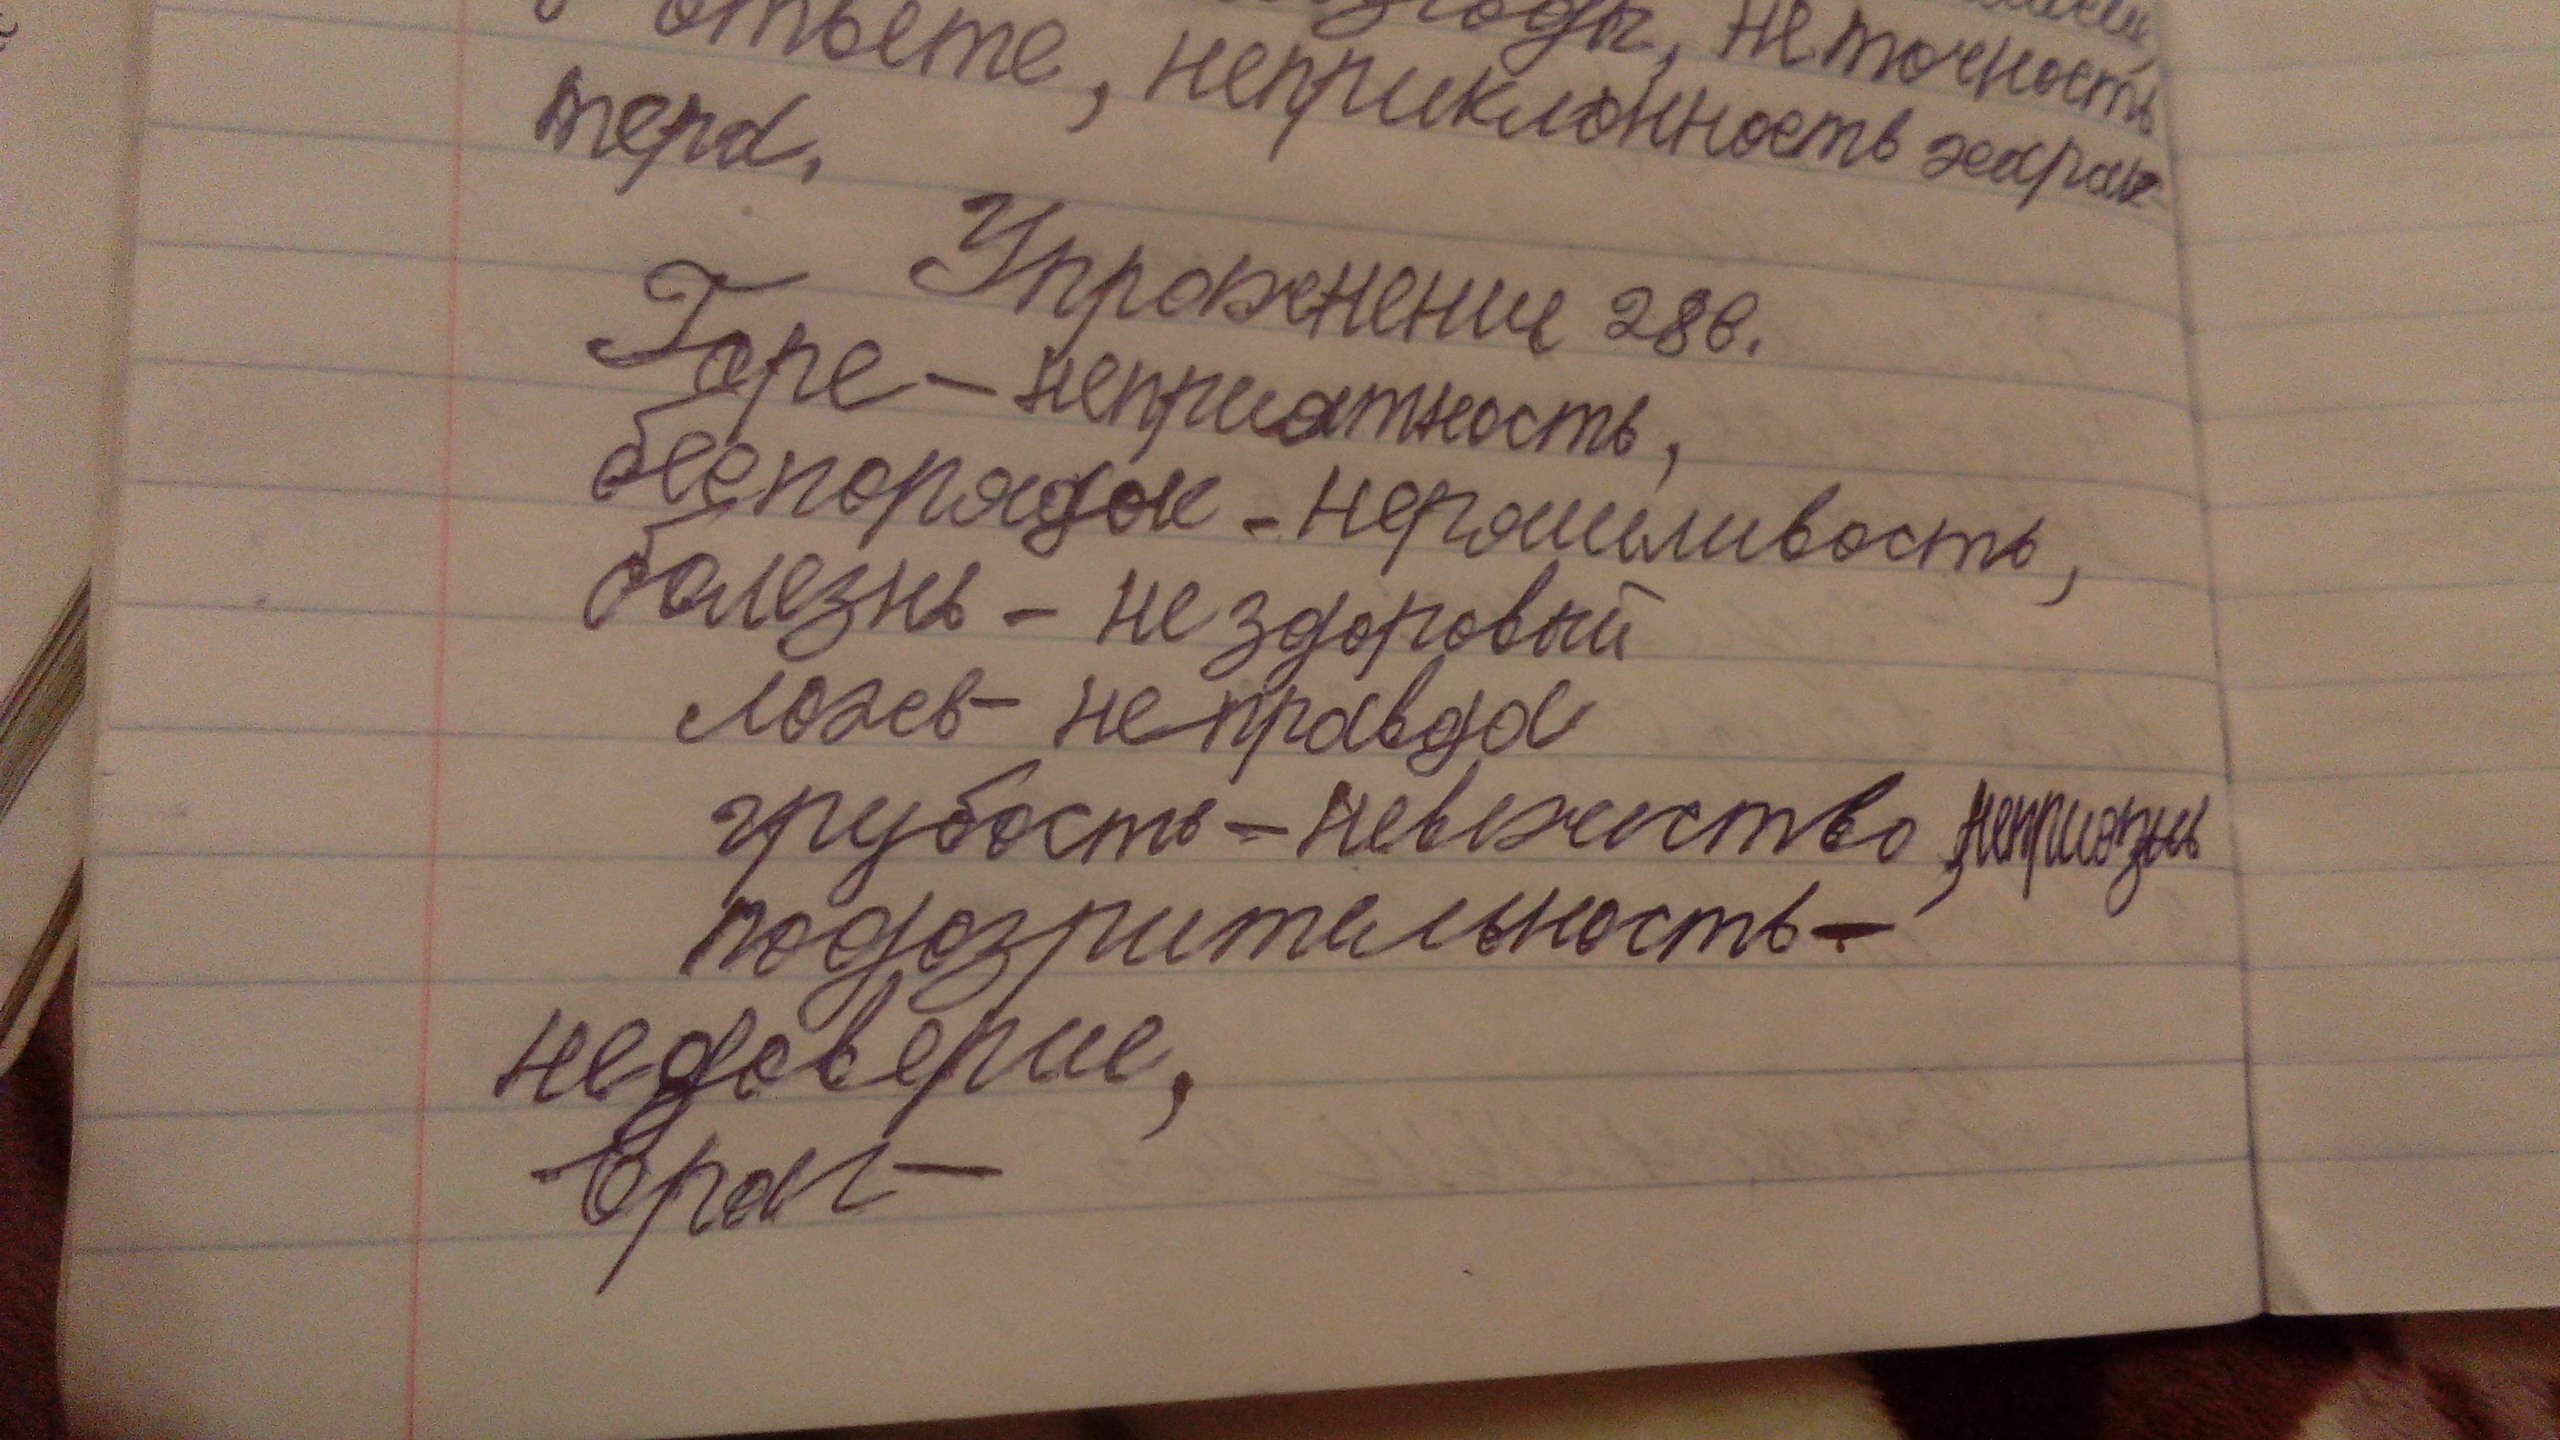 невзгоды, неточность
ответе, неприклонность харак-
тера.
Упражнение 286.
Горе - неприятность,
беспорядок - неряшливость,
болезнь - не здоровый
ложь - не правда
грубость - невежество, неприязнь
подозрительность -
недоверие,
враг -